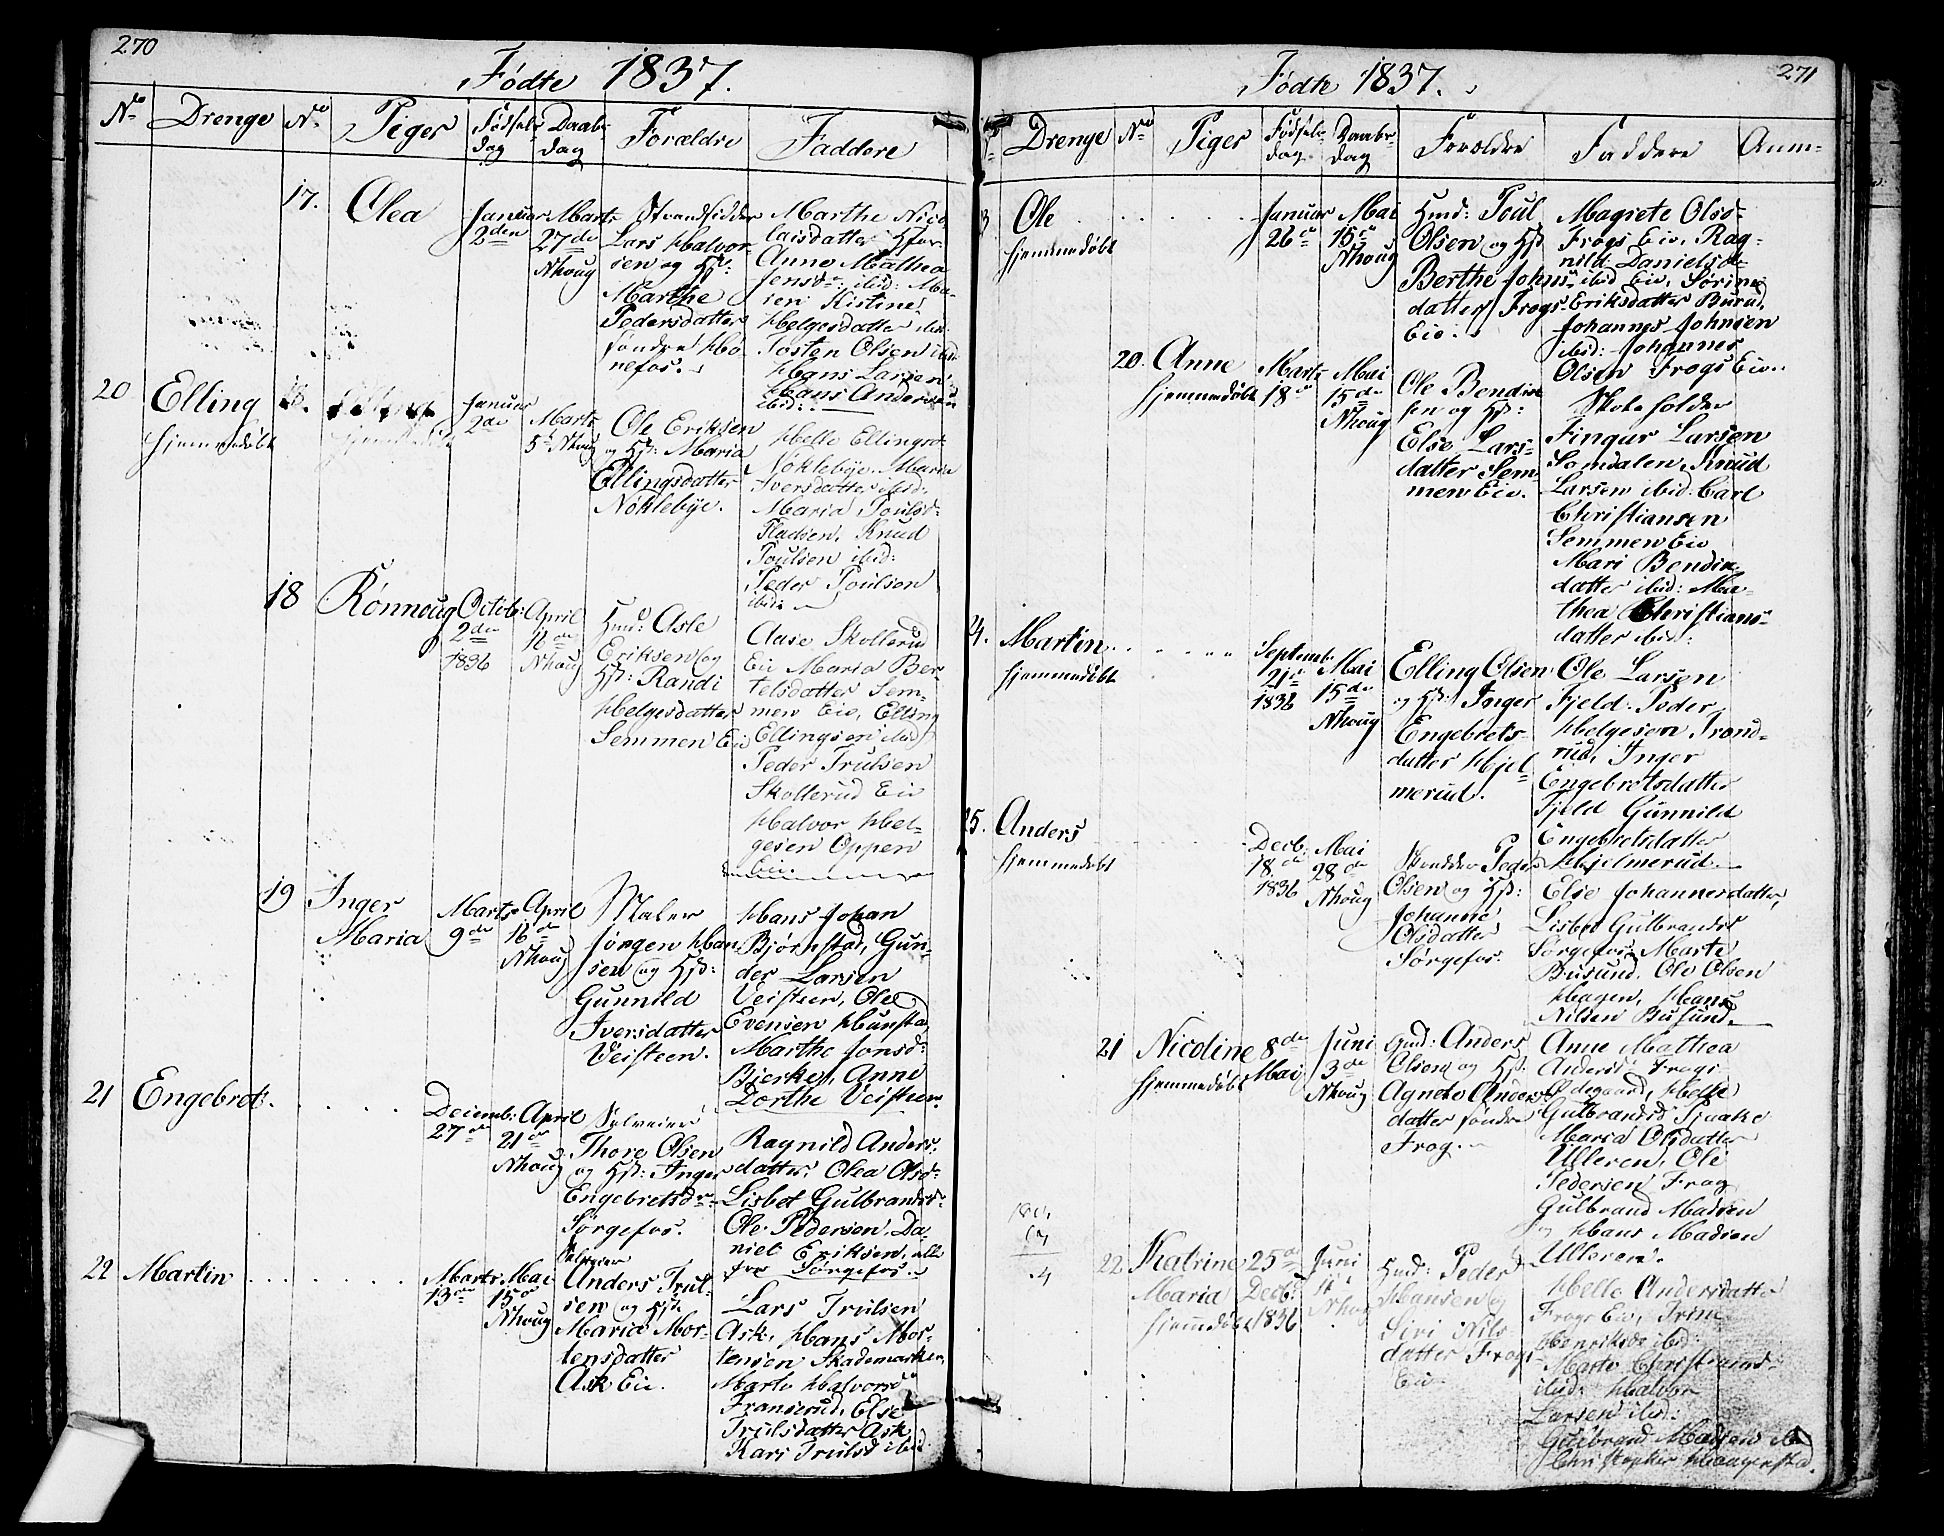 270
Födte 1837.
No Drenge No Piger Födsels dag Daabs dag Forældre Faddere
17. Olea
Januar 2den
Marts 27de Nhoug
Strandsidder
Lars Halvor-
sen og Hst:
Marthe
Pedersdatter
söndre Hö-
nefos.
Marthe Nico-
laisdatter
Anne Mathea
Jensdr: ibid: Ma-
ren Kistine
Helgesdatter ibid:
Tosten Olsen ibid:
Hans Larsen
Hans Andersen
ibid:
20 Elling
hjemmedöbt
18.
Januar 2de
Marts 5te Nhoug
Ole Eriksen
og Hst: Maria
Ellingsdatter
Nöklebye.
Helle Ellingsd:
Nöklebye. Maria
Iversdatter ibid:
Maria Poulsd:
Pladsen, Knud
Poulsen ibid:
Peder Poulsen
ibid:
18 Rönnoug
Octob: 2den 1836
April 12de Nhoug
Hmd: Asle
Eriksen og
Hst: Randi
Helgesdatter
Semmen Eie
Aase Skollerud
Eie Maria Ber-
telsdatter Sem-
men Eie, Elling
Ellingsen ibid
Peder Trulsen
Skollerud Eie
Halvor Hel-
gesen Oppen
Eie.
19 Inger
Maria
Marts 9de
April 16de Nhoug
Maler
Jörgen Han-
sen og Hst:
Gunnild
Iversdatter
Veisteen.
Hans Johan
Björnstad, Gun-
der Larsen
Veisteen, Ole
Evensen Hunstad
Marthe Jonsd:
Bjerke, Anne
Dorthe Veisteen.
21 Engebret.
Decemb: 27de
April 21de Nhoug
Selveier
Thore Olsen
og Hst: Inger
Engebretsdr
Sörgefos.
Ragnild Anders-
datter, Olea Olsd:
Lisbet Gulbrandsd:
Ole Pedersen, Da-
niel Eriksen, alle
fra Sörgefos.
22 Martin
Marts 13de
Mai 15de Nhoug
Selveier
Anders Trul-
sen og Hst:
Maria Mor-
tensdatter
Ask Eie.
Lars Trulsen
Ask, Hans Mor-
tensen Skademarken,
Marte Halvorsd
Franserud, Else
Trulsdatter Ask
Kari Trulsd ibid
271
Födte 1837.
Drenge No Piger Födsels dag Daabs dag Forældre Faddere Anm-
3 Ole
hjemmedöbt
Januar 26de
Mai 15de Nhoug
Hmd: Poul
Olsen og Hst
Berthe Johns-
datter Frogs
Eie.
Magrete Olsd-
Frogs Eie, Rag-
nild Danielsd-
ibid Eie, Sörine
Eriksdatter Burud,
Johannes Johnsen
ibid: Johannes
Olsen Frogs Eie.
20. Anne
hjemmedöbt
Marts 18de
Mai 15de Nhoug
Ole Bendix-
sen og Hst:
Else Lars-
datter Sem-
men Eie.
Skoleholder
Fingar Larsen
Somdalen, Knud
Larsen ibid. Carl
Christiansen
Semmen Eie
Mari Bendix-
datter ibid: Ma-
thea Christians-
datter ibid:
24. Martin
hjemmedöbt
Septemb. 21de 1836
Mai 15de Nhoug
Elling Olsen
og Hst: Inger
Engebrets-
datter Hjel-
merud.
Ole Larsen
Fjeld. Peder
Helgesen Trond-
rud, Inger
Engebretsdatter
Fjeld Gunnild
Engebretsdatter
Hjelmerud.
25. Anders
hjemmedöbt
Decb: 18de 1836
Mai 28de Nhoug
Peder
Olsen og Hst:
Johanne
Olsdatter
Sörgefos.
Else Johannesdatter,
Lisbet Gulbrandsd
Sörgefos. Marte
Busund, Ole Olsen
Hagen, Hans
Nilsen Busund.
21 Nicoline
hjemmedöbt
8de Mai
Juni 3de Nhoug
Hmd: Anders
Olsen og Hst:
Agnete Anders-
datter söndre
Frog.
Anne Mathea
Andersd Frogs
Ödegaard, Helle
Gulbrandsd Tjaake
Maria Olsdatter
Ulleren, Ole
Pedersen Frog
Gulbrand Madsen
og Hans Madsen
Ulleren.
22. Katrine
Maria
hjemmedöbt
25de Decb: 1836
Juni Nhoug
Hmd: Peder
Hansen og
Siri Nils-
datter Frogs
Eie
Helle Andersdatter
Frogs Eie, Trine
Henriksdr ibid:
Marte Christiansd-
ibid: Halvor
Larsen ibid:
Gulbrand Madsen ibid
Christopher Haagenstad.